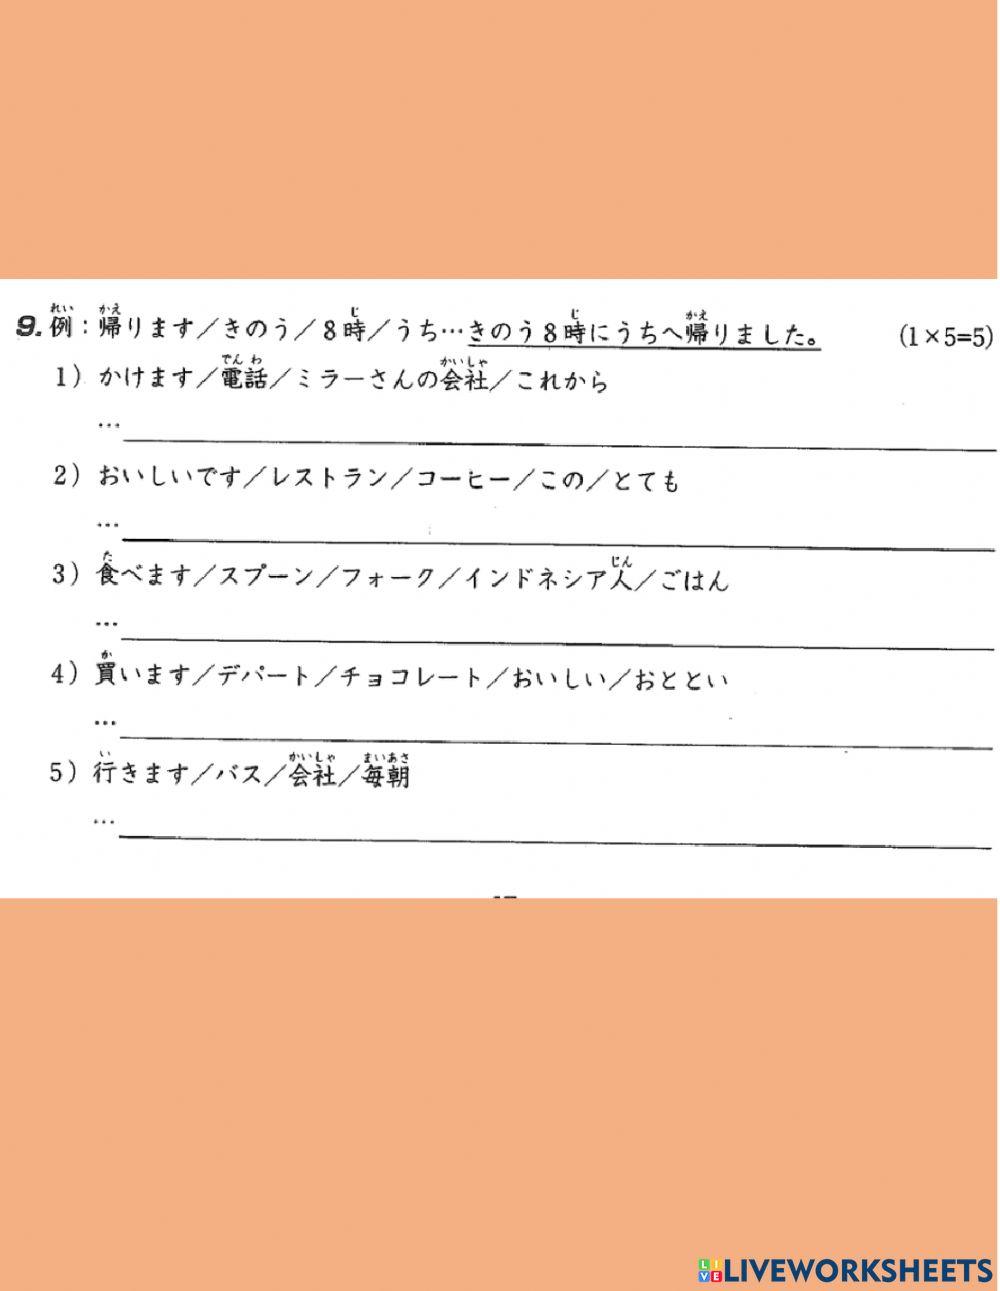 9. 例：帰ります／きのう／8時／うち…きのう8時にうちへ帰りました。 (1×5=5)
1) かけます／電話／ミラーさんの会社／これから
…
2) おいしいです／レストラン／コーヒー／この／とても
…
3) 食べます／スプーン／フォーク／インドネシア人／ごはん
…
4) 買います／デパート／チョコレート／おいしい／おととい
…
5) 行きます／バス／会社／毎朝
…
LIVEWORKSHEETS